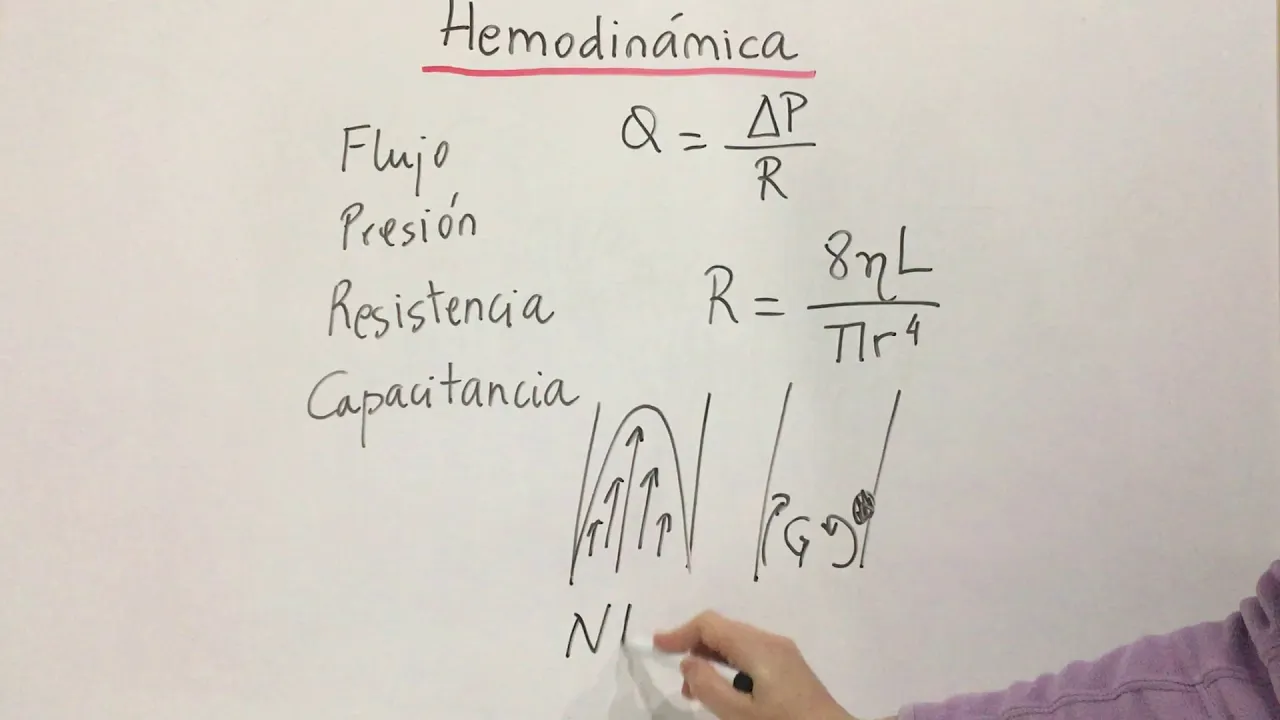 Hemodinámica
Flujo
Presión
Resistencia
Capacitancia
Q = ΔP / R
R = 8ηL / πr⁴